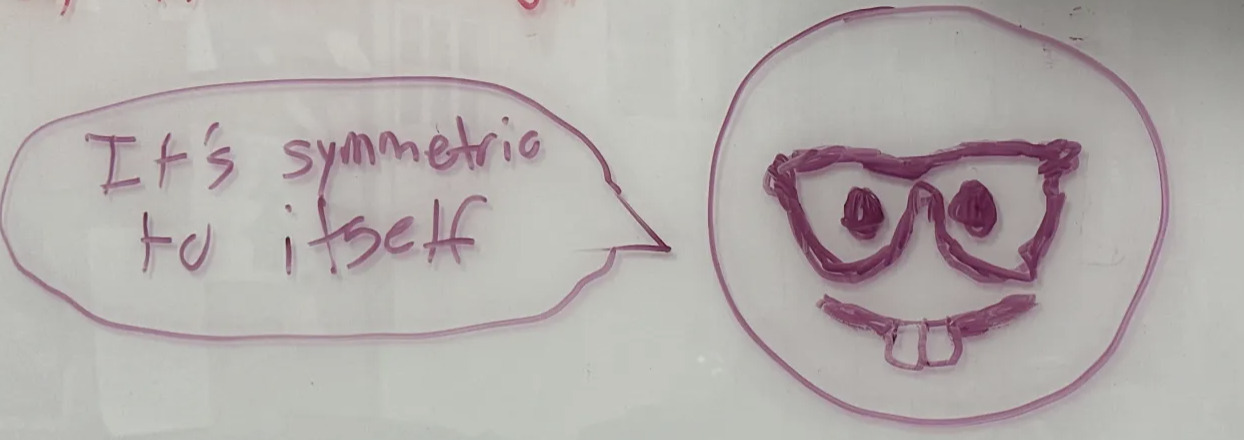 It's symmetric
to itself